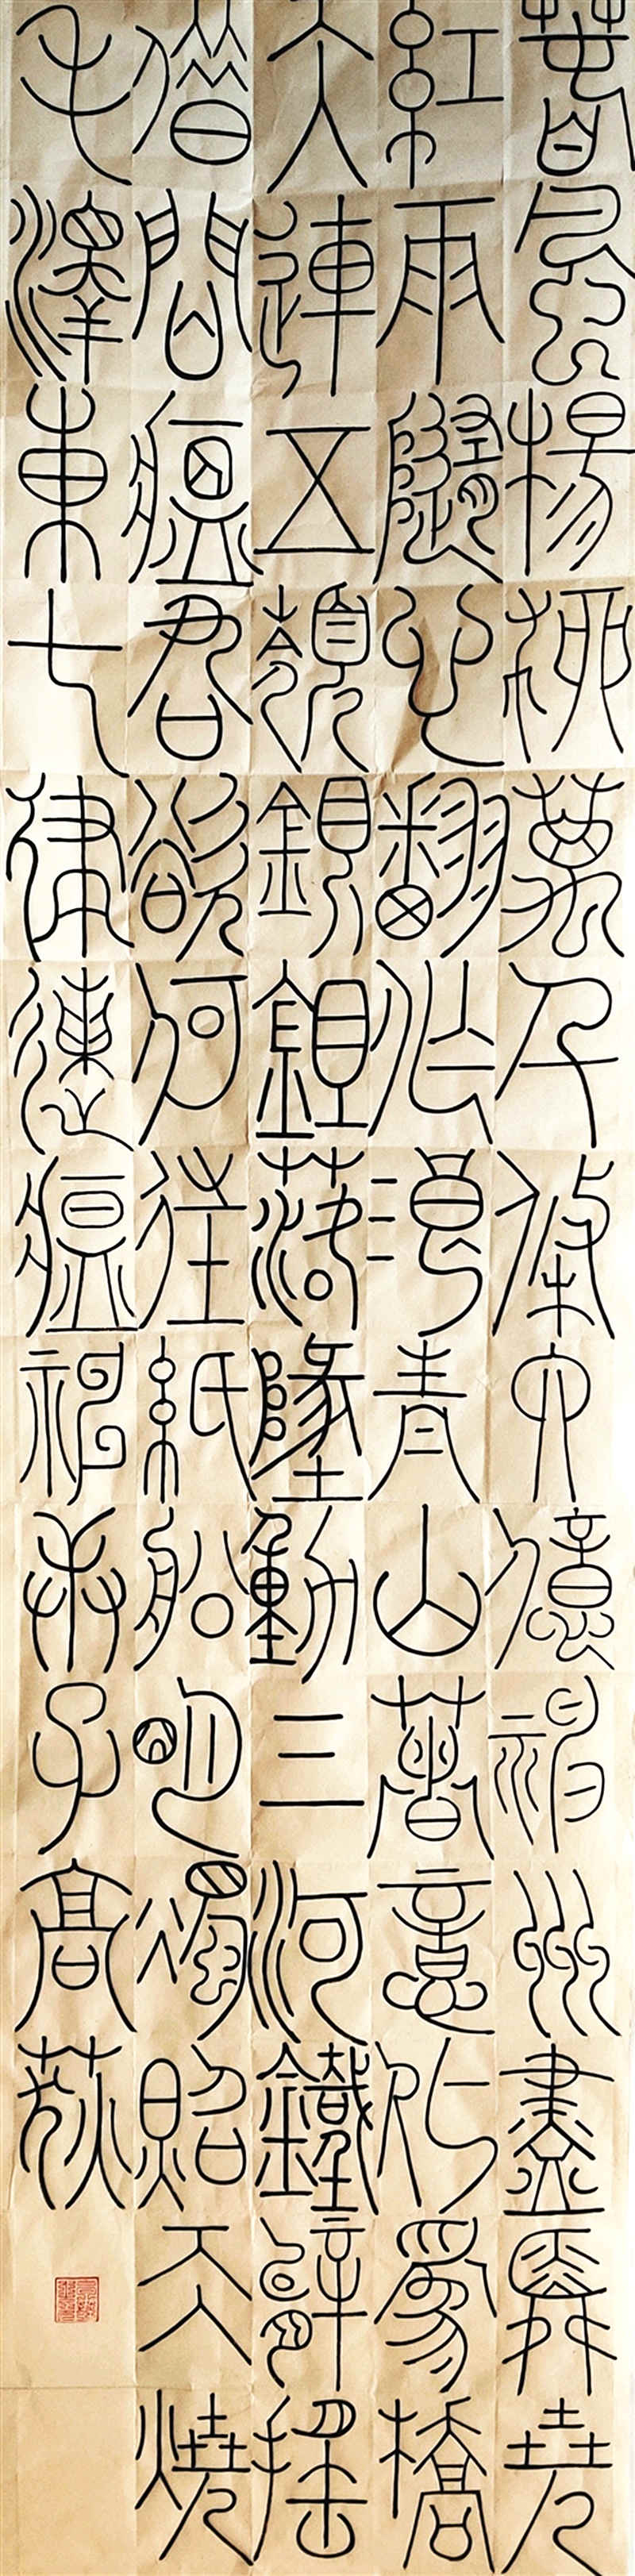 春風楊柳萬千條六億神州盡舜堯
紅雨隨心翻作浪青山著意化為橋
天連五領銀鉏落墬動三河鐵臂搖
借問瘟君欲何往紙船明燭照天燒
毛澤東七律送瘟神子高荻